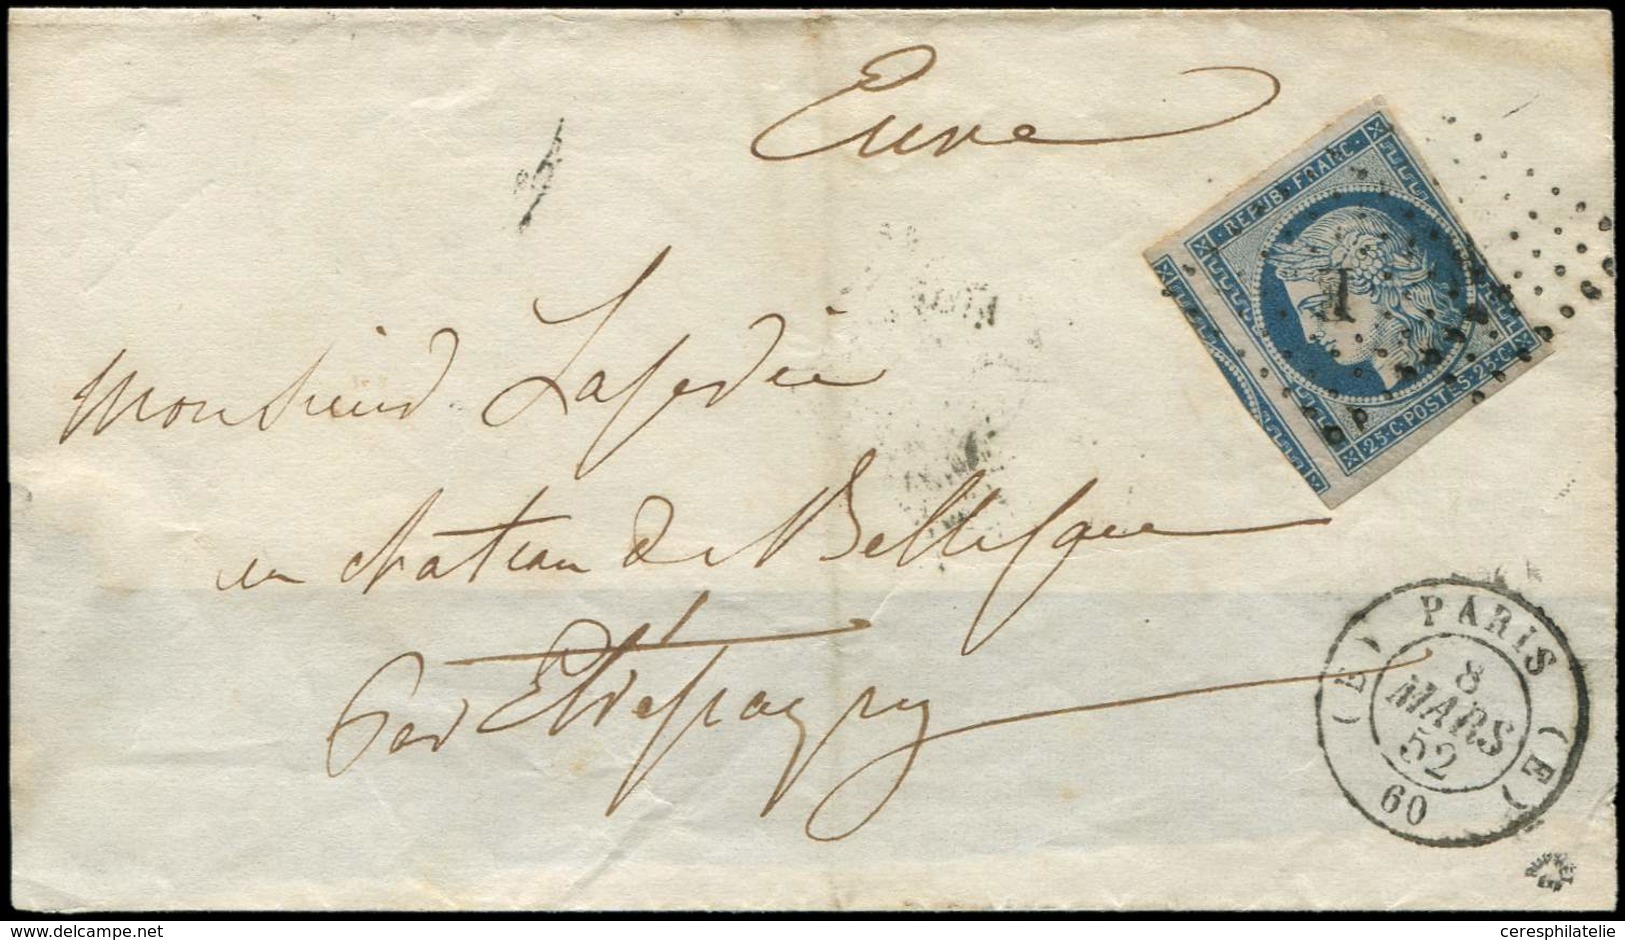 Eure
REPUB · FRANC ·
I
25 · C · POSTES · 25 · C ·
Monsieur
au chateau de Bellisque
par Etrepagny
(E) PARIS (E)
8
MARS
52
60
delcampe.net
ceresphilatelie